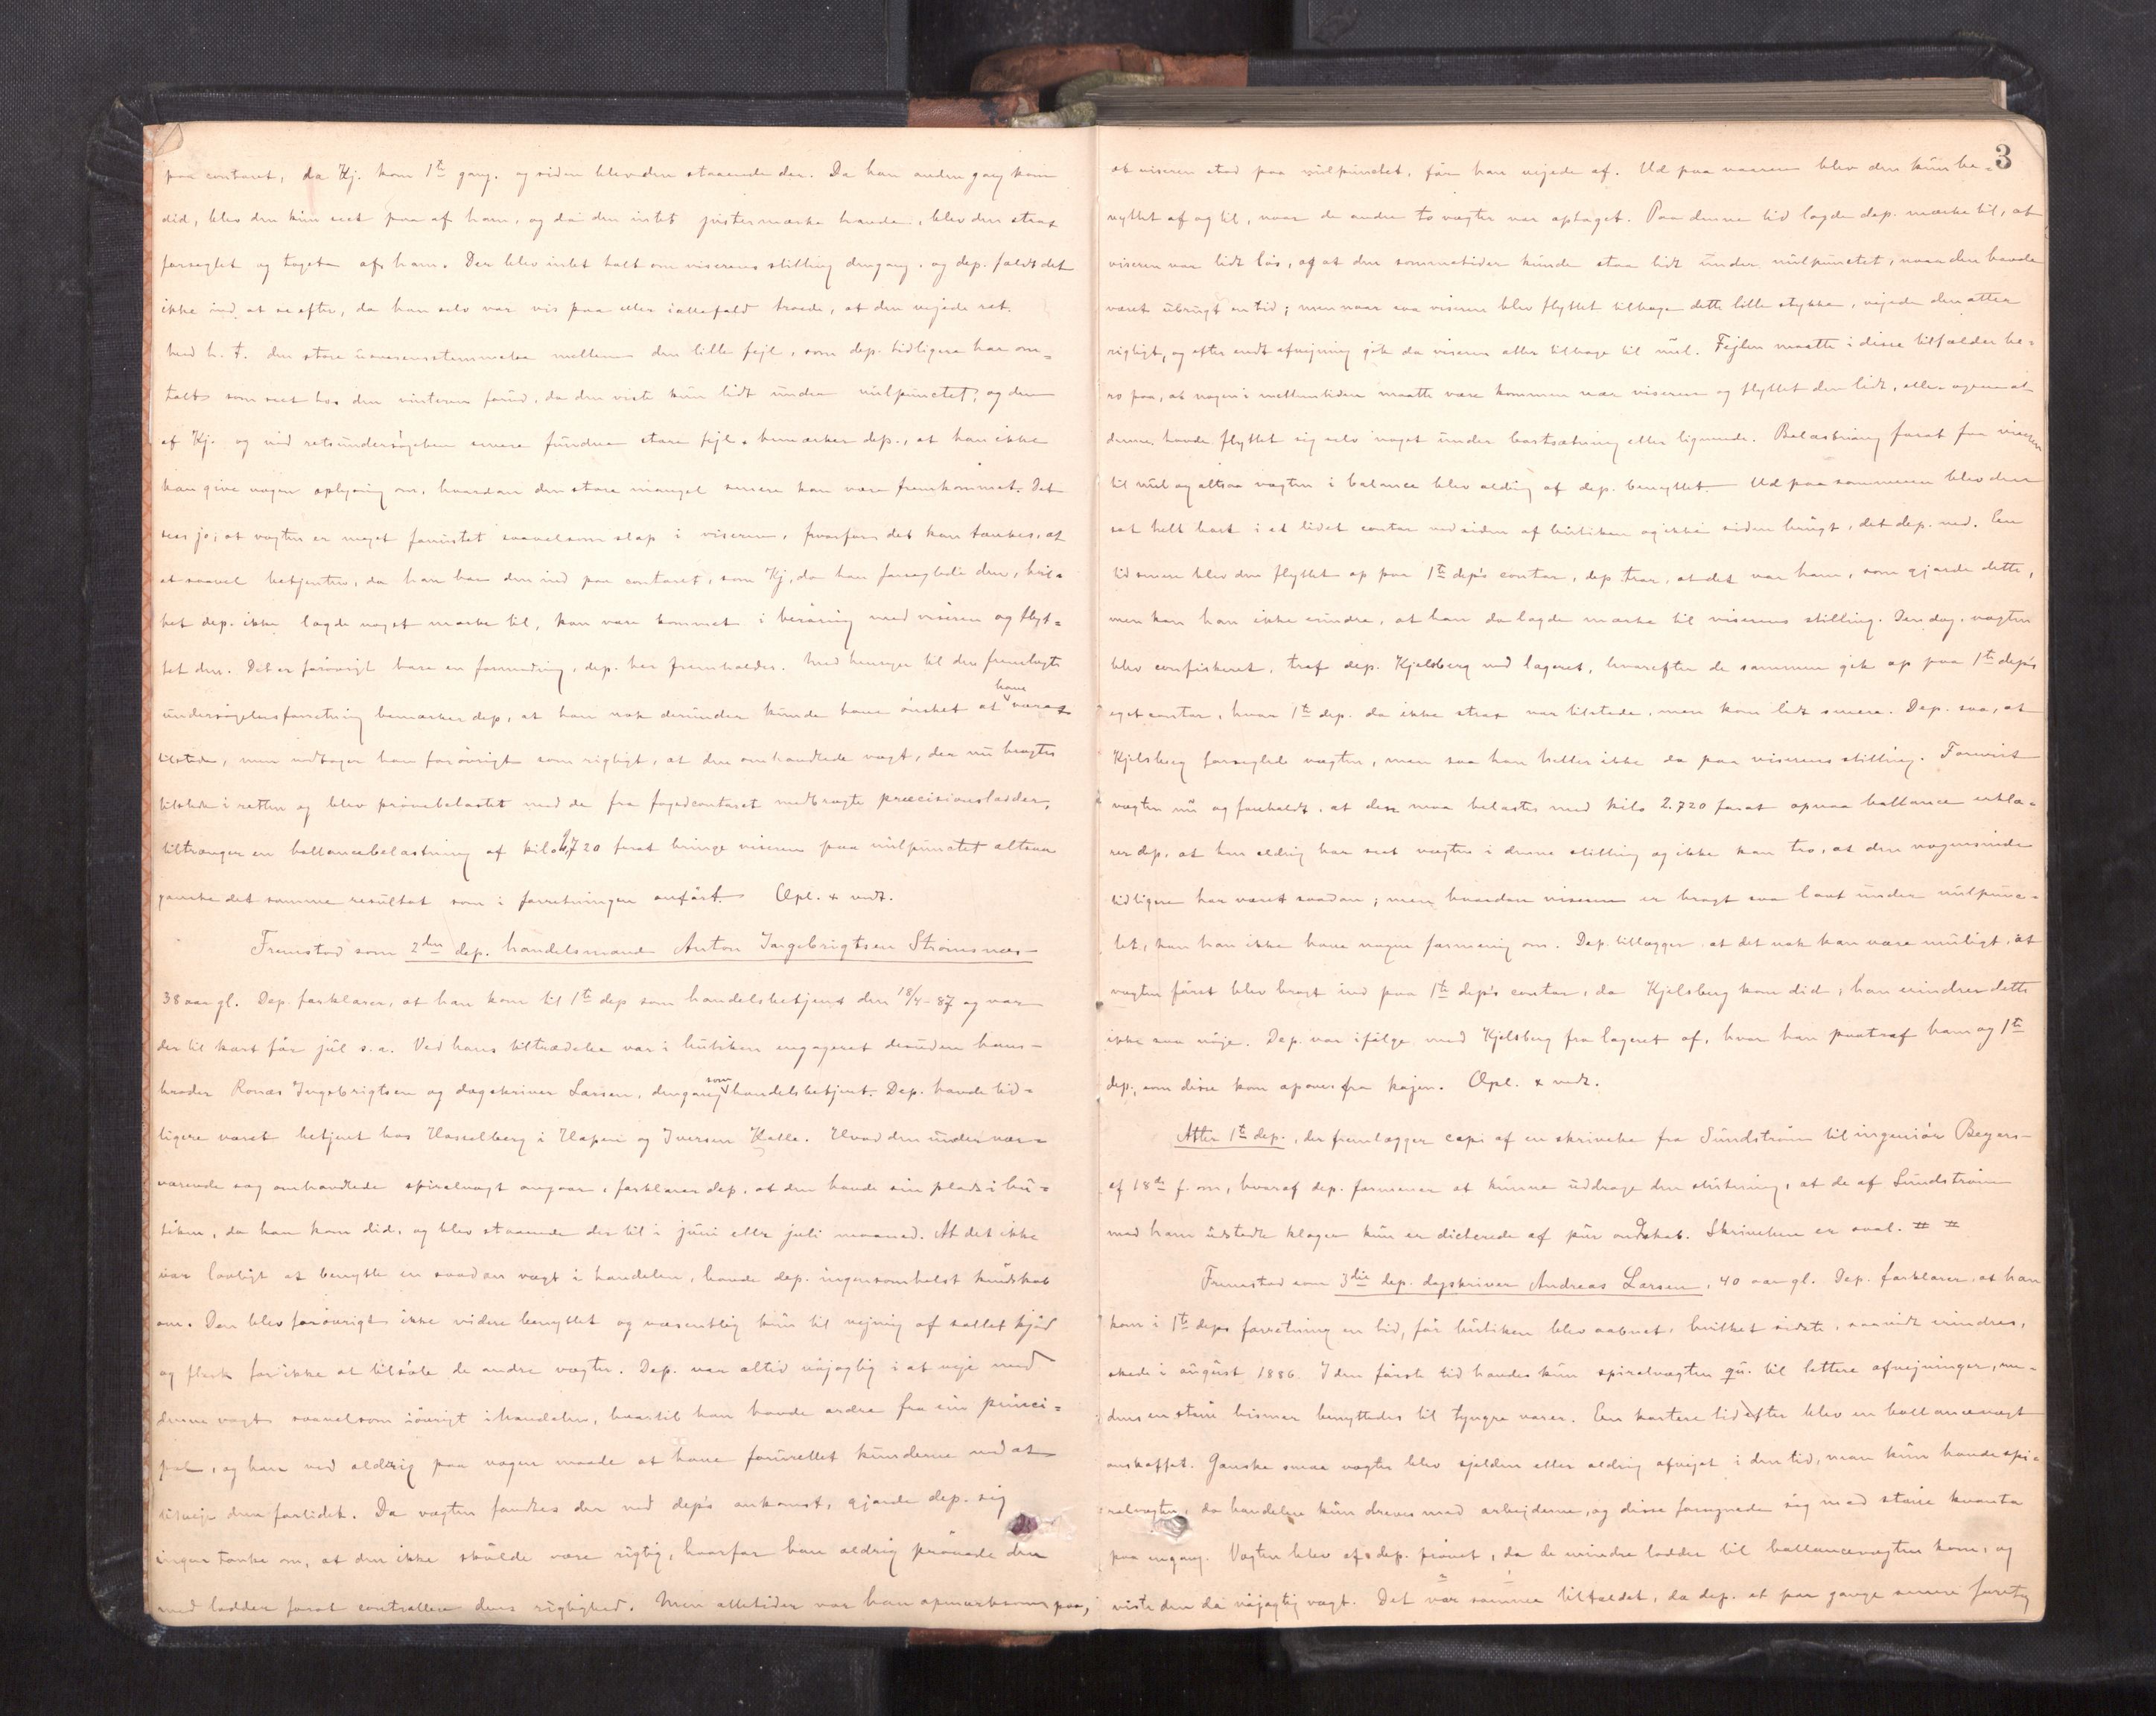 paa contoret, da Kj. kom 1ste gang. og siden blev den staaende der. Da han anden gang kom
did, blev den kun seet paa af ham, og da den intet justermærke havde, blev den strax
forseglet og taget af ham. Der blev intet talt om viserens stilling dengang. og dep. faldt det
ikke ind at se efter, da han selv var vis paa eller iallefald troede, at den vejede ret.
Med h. t. den store uoverensstemmelse mellem den lille fejl, som dep. tidligere har om-
talt som seet hos den vinteren forud, da den viste kun lidt under nulpunctet, og den
af Kj. og ved retsundersøgelsen senere fundne store fejl bemærker dep., at han ikke
kan give nogen oplysning om, hvordan den store mangel senere kan være fremkommet. Det
sees jo, at vægten er meget forrustet saavelsom slap i viseren, hvorfor det kan tænkes, at
at saavel betjenten, da han bar den ind paa contoret, som Kj., da han forseglede den, hvil-
ket dep. ikke lagde noget mærke til, kan være kommet i berøring med viseren og flyt-
tet den. Det er forøvrigt bare en formodning, dep. her fremholder. Med hensyn til den fremlagte
undersøgelsesforretning bemærker dep., at han nok derunder kunde have ønsket at have været
tilstede, men vedtager han forøvrigt som rigtigt, at den omhandlede vægt, der nu bragtes
tilstede i retten og blev prøvebelastet med de fra fogedcontoret medbragte præcisionslodder,
tiltrænger en ballancebelastning af kilo 2,720 forat bringe viseren paa nulpunctet altsaa
ganske det samme resultat som i forretningen anført. Opl. & vedt.
Fremstod som 2den dep. handelsmand Anton Ingebrigtsen Strømsnæs
38 aar gl. Dep. forklarer, at han kom til 1ste dep som handelsbetjent den 18/4-87 og var
der til kort før jul s. a. Ved hans tiltrædelse var i butiken engageret desuden hans
broder Ronæs Ingebrigtsen og dagskriver Larsen, dengang som handelsbetjent. Dep. havde tid-
ligere været betjent hos Hasselberg i Hopen og Iversen Kalle. Hvad den under nær-
værende sag omhandlede spiralvægt angaar, forklarer dep. at den havde sin plads i bu-
tiken, da han kom did, og blev staaende der til i juni eller juli maaned. At det ikke
var lovligt at benytte en saadan vægt i handelen, havde dep. ingensomhelst kundskab
om. Den blev forøvrigt ikke videre benyttet og væsentlig kun til vejning af saltet kjød
og flesk for ikke at tilsøle de andre vægter. Dep. var altid nøjagtig i at veje med
denne vægt saavelsom iøvrigt i handelen, hvortil han havde ordre fra sin princi-
pal, og han ved aldrig paa nogen maade at have forurettet kunderne ved at
tilveje dem forlidet. Da vægten fandtes der ved dep's ankomst, gjorde dep. sig
ingen tanke om, at den ikke skulde være rigtig, hvorfor han aldrig prøvede den
med lodder forat controllere dens rigtighed. Men alletider var han opmærksom paa,
3
at viseren stod paa nulpunctet, før han vejede af. Ud paa vaaren blev den kun be-
nyttet af og til, naar de andre to vægter var optaget. Paa denne tid lagde dep. mærke til, at
viseren var lidt løs, og at den sommetider kunde staa lidt under nulpunctet, naar den havde
været ubrugt en tid; men naar saa viseren blev flyttet tilbage dette lille stykke, vejede den atter
rigtigt, og efter endt afvejning gik da viseren atter tilbage til nul. Fejlen maatte i disse tilfælder be-
ro paa, at nogen i mellemtiden maatte være kommen nær viseren og flyttet den lidt, eller ogsaa at
denne havde flyttet sig selv noget under bortsætning eller lignende. Belastning forat faa viseren
til nul og altsaa vægten i balance blev aldrig af dep. benyttet. Ud paa sommeren blev den
sat helt bort i et lidet contor ved siden af butiken og ikke siden brugt, det dep. ved. En
tid senere blev den flyttet op paa 1ste dep's contor, dep. tror, at det var ham, som gjorde dette,
men kan han ikke erindre, at han da lagde mærke til viserens stilling. Den dag, vægten
blev confiskeret, traf dep. Kjelsberg ved lageret, hvorefter de sammen gik op paa 1ste dep's
eget contor, hvor 1ste dep. da ikke strax var tilstede, men kom lidt senere. Dep. saa, at
Kjelsberg forseglede vægten, men saa han heller ikke da paa viserens stilling. Forevist
vægten nu og foreholdt, at den maa belastes med kilo 2.720 forat opnaa ballance erklæ-
rer dep. at han aldrig har seet vægten i denne stilling og ikke kan tro, at den nogensinde
tidligere har været saadan; men hvordan viseren er bragt saa lavt under nulpunc-
tet, kan han ikke have nogen formening om. Dep. tillægger at det nok kan være muligt, at
vægten først blev bragt ind paa 1ste dep's contor, da Kjelsberg kom did; han erindrer dette
ikke saa nøje. Dep. var ifølge med Kjelsberg fra lageret af, hvor han paatraf ham og 1ste
dep., som disse kom opover fra kajen. Opl. & vedt.
Atter 1ste dep., der fremlægger copi af en skrivelse fra Sundstrøm til ingeniør Beyers
af 18de f. m., hvoraf dep. formener at kunne uddrage den slutning, at de af Sundstrøm
mod ham udstedte klager kun er dicterede af pur ondskab. Skrivelsen er saal. # #
Fremstod som 3die dep. dagskriver Andreas Larsen, 40 aar gl. Dep. forklarer, at han
kom i 1ste deps forretning en tid, før butiken blev aabnet, hvilket sidste, saavidt erindres,
skede i august 1886. I den første tid havdes kun spiralvægten qu. til lettere afvejninger, me-
dens en større bismer benyttedes til tyngre varer. En kortere tid efter blev en ballancevægt
anskaffet. Ganske smaa vægter blev sjelden eller aldrig afvejet i den tid, man kun havde spi-
ralvægten, da handelen kun dreves med arbejderne, og disse forsynede sig med større kvanta
paa engang. Vægten blev af dep. prøvet, da de mindre lodder til ballancevægten kom, og
viste den da nøjagtig vægt. Det var samme tilfældet, da dep. et par gange senere foretog